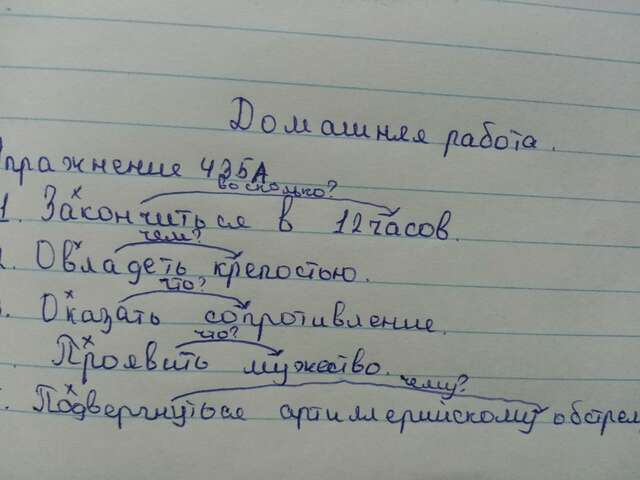 Домашняя работа.
Упражнение 435А
во сколько?
1. Закончиться в 12 часов.
чем?
2. Овладеть крепостью.
что?
3. Оказать сопротивление.
что?
Проявить мужество.
чему?
Подвергнуться артиллерийскому обстрел